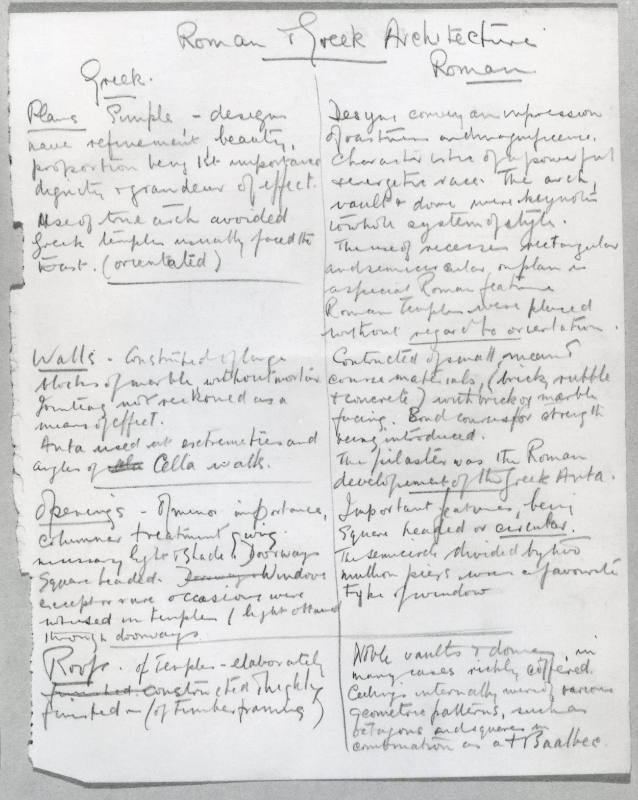 Roman & Greek Architecture
Greek.
Plans Simple - designs
have refinement beauty,
proportion being 1st importance
dignity & grandeur of effect.
Use of true arch avoided
Greek temples usually faced the
East. (orientated)
Walls - Constructed of large
blocks of marble without mortar
Jointing not reckoned as a
means of effect.
Anta used at extremeties and
angles of Cella walls.
Openings - Of minor importance,
columnar treatment giving
necessary light & shade. Doorways
Square headed. Windows
except on rare occasions were
not used in temples (light obtained
through doorways.
Roofs. of temples - elaborately
finished constructed & highly
finished - (of timber framing)
Roman
Designs convey an impression
of vastness and magnificence.
Characteristic of a powerful
& energetic race. The arch,
vault & dome were keynotes
to whole system of style.
The use of recesses rectangular
and semicircular, on plan is
a special Roman feature
Roman temples were placed
without regard to orientation.
Contructed of small, mean &
coarse materials, (brick, rubble
& concrete) with brick or marble
facing. Bond courses for strength
being introduced.
The pilaster was the Roman
developement of the Greek Anta.
Important features, being
Square headed or circular.
The semicircle divided by two
mullion piers was a favourite
type of window
Noble vaults & domes, in
many cases richly coffered.
Ceilings internally were of various
geometric patterns, such as
octagons and squares in
combination as at Baalbec.